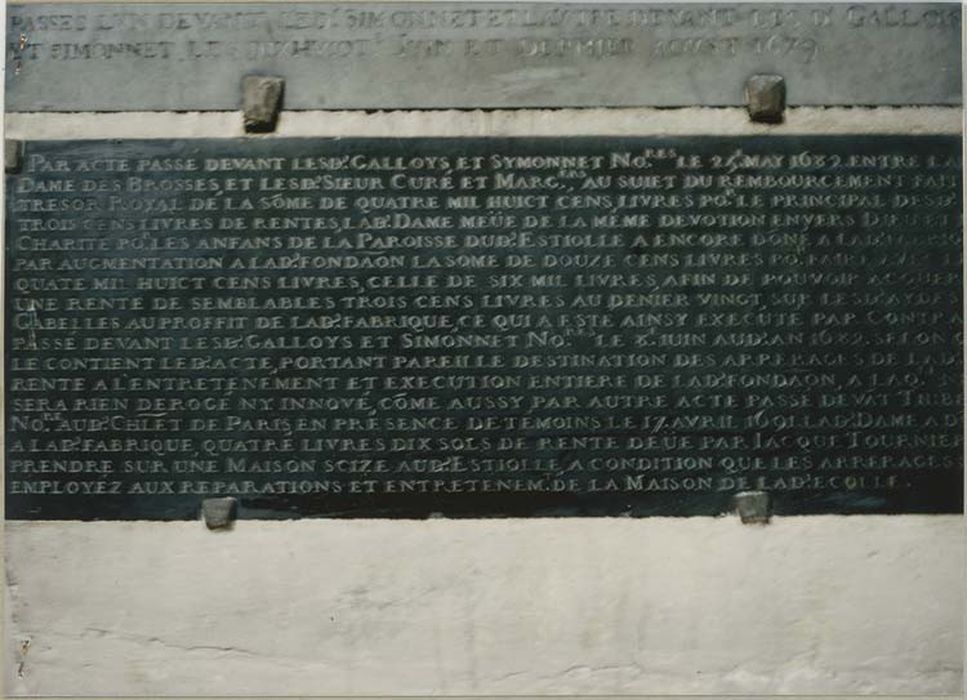 PASSES L'UN DEVANT LESD. SIMONNET ET L'AUTRE DEVANT LESD. GALLOIS
ET SIMONNET, LES DIXHUICT. JUIN ET DERNIER AOUST 1679
PAR ACTE PASSÉ DEVANT LESD. GALLOYS, ET SYMONNET NO.RES LE MAY 1682. ENTRE
DAME DES BROSSES, ET LESD. SIEUR CURÉ ET MARG.ERS, AU SUIET DU REMBOURCEMENT FAIT
TRESOR ROYAL DE LA SÔME DE QUATRE MIL HUICT CENS LIVRES PO. LE PRINCIPAL DESD.
TROIS CENS LIVRES DE RENTES, LAD. DAME MEÜE DE LA MÊME DEVOTION ENVERS DIEU ET
CHARITÉ PO. LES ANFANS DE LA PAROISSE DUD. ESTIOLLE A ENCORE DÔNÉ A LAD.
PAR AUGMENTATION A LAD. FONDAON LA SOME DE DOUZE CENS LIVRES PO. FAIRE AVEC
QUATE MIL HUICT CENS LIVRES, CELLE DE SIX MIL LIVRES, AFIN DE POUVOIR ACQUER
UNE RENTE DE SEMBLABLES TROIS CENS LIVRES AU DENIER VINGT, SUR LESD. AYDES
GABELLES AU PROFFIT DE LAD. FABRIQUE, CE QUI A ESTÉ AINSY EXECUTÉ PAR CONTRA
PASSÉ DEVANT LESD. GALLOYS ET SIMONNET NO.RES LE 8. IUIN AUD. AN 1682. SELON
LE CONTIENT LED. ACTE, PORTANT PAREILLE DESTINATION DES ARRERAGES DE LAD.
RENTE A L'ENTRETENEMENT ET EXECUTION ENTIERE DE LAD. FONDAON, A LAQ.
SERA RIEN DEROGÉ NY INNOVÉ, CÔME AUSSY PAR AUTRE ACTE PASSÉ DEVAT
NO.RE AUD. CHLET DE PARIS, EN PRESENCE DE TEMOINS LE 17. AVRIL 1691. LAD. DAME A
A LAD. FABRIQUE, QUATRE LIVRES DIX SOLS DE RENTE DEÜE PAR IACQUE TOURNIER
PRENDRE SUR UNE MAISON SCIZE AUD. ESTIOLLE, A CONDITION QUE LES ARRERAGES
EMPLOYEZ AUX REPARATIONS ET ENTRETENEM. DE LA MAISON DE LAD. ECOLLE.